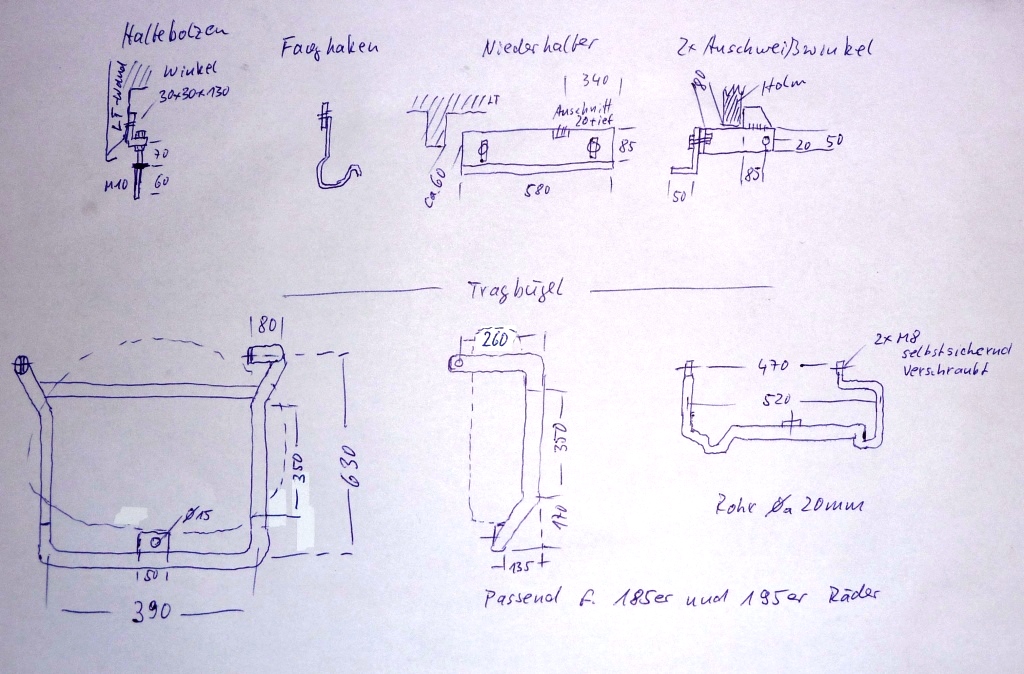 Haltebolzen
LT-Wand
Winkel
30x30x130
70
M10
60
Fanghaken
Niederhalter
340
LT
Anschnitt
20 tief
85
ca. 60
580
2x Anschweißwinkel
80
Holm
20
50
85
50
Tragbügel
80
630
350
Ø15
50
390
260
350
170
135
2x M8
selbstsichernd
verschraubt
470
520
Rohr Øa 20mm
Passend f. 185er und 195er Räder